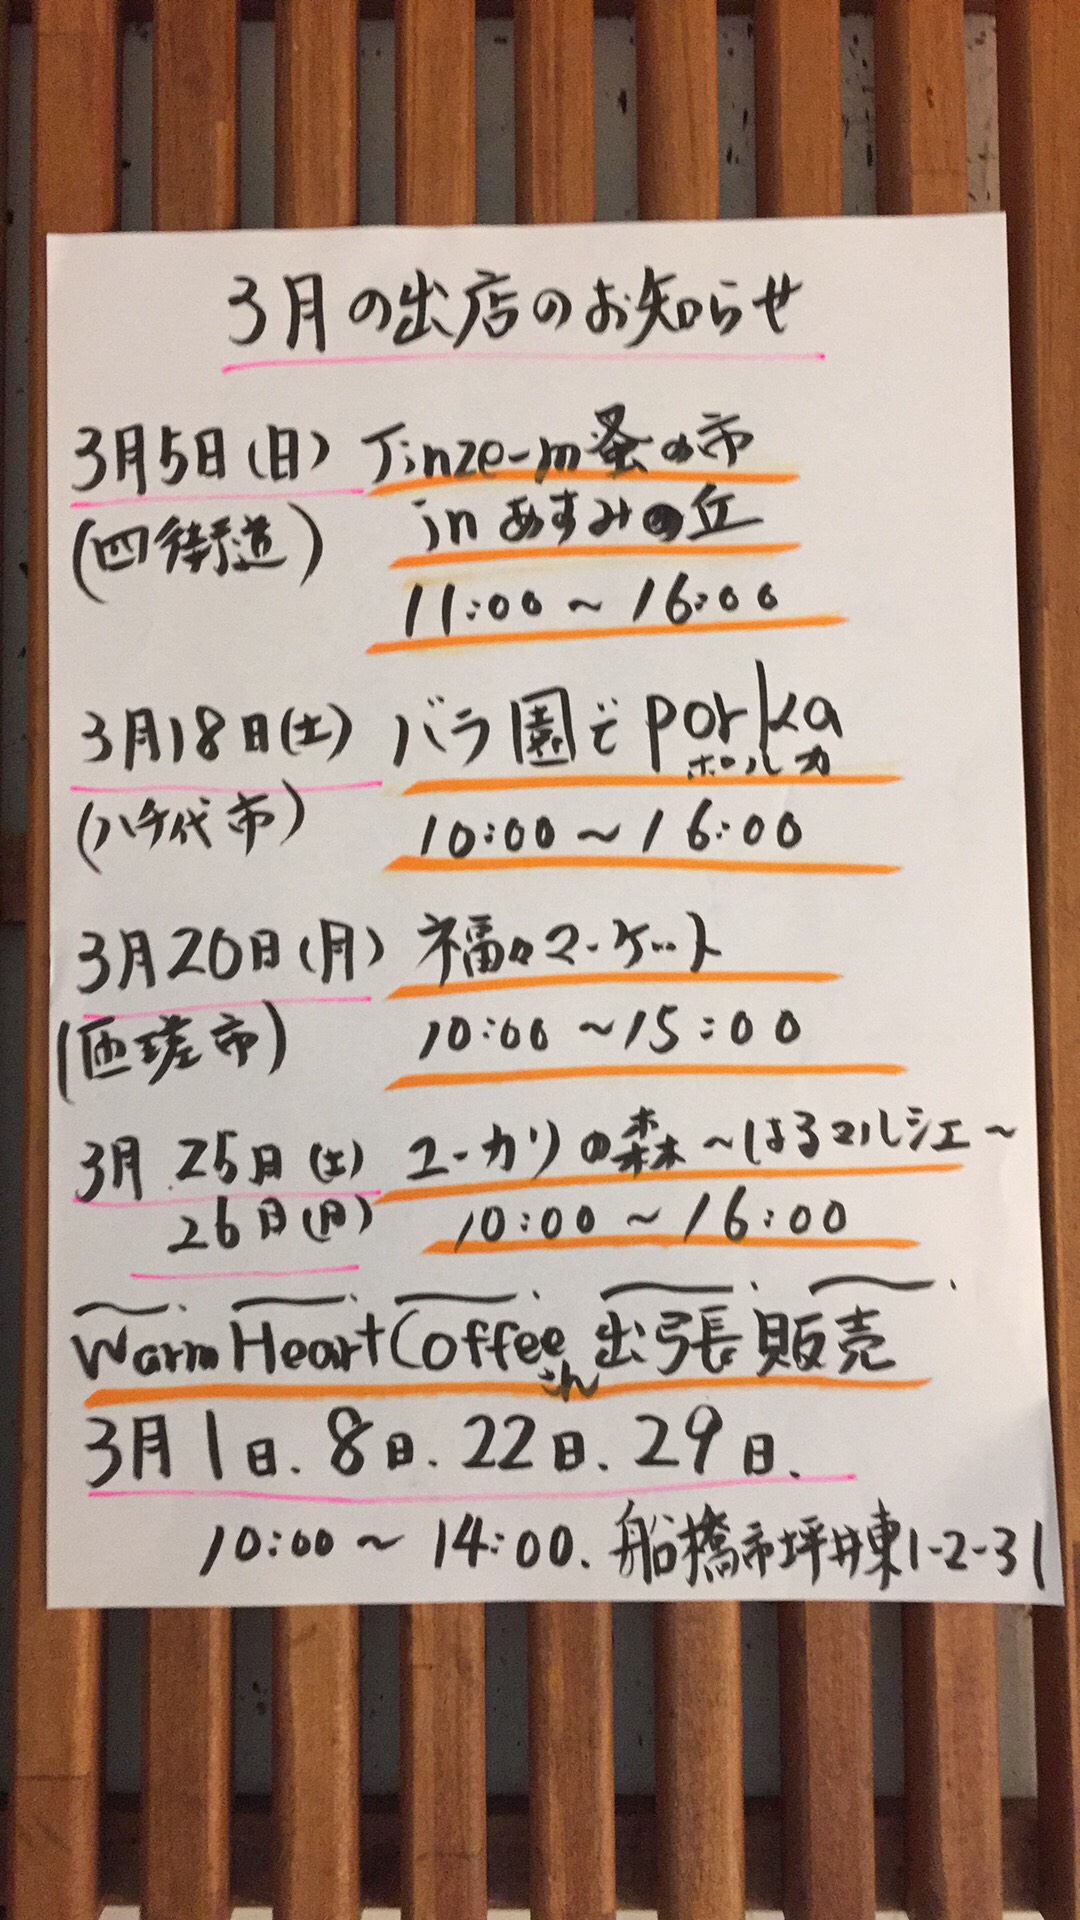 3月の出店のお知らせ
3月5日(日) Jinze-m蚤の市
(四街道) inあすみの丘
11:00～16:00
3月18日(土) バラ園でporka
ポルカ
(八千代市) 10:00～16:00
3月20日(月) 福々マーケット
(匝瑳市) 10:00～15:00
3月25日(土) ユーカリの森～はるマルシェ～
26日(月) 10:00～16:00
Warm Heart Coffeeさん出張販売
3月1日.8日.22日.29日.
10:00～14:00.船橋市坪井東1-2-31